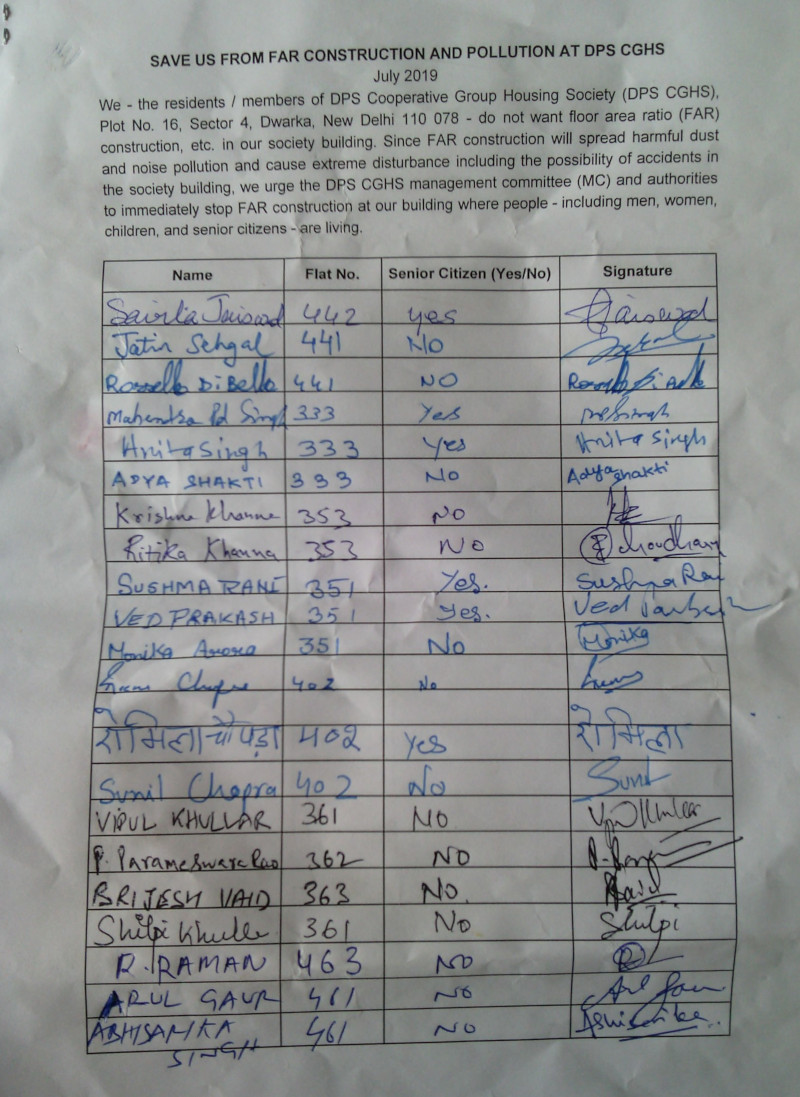 SAVE US FROM FAR CONSTRUCTION AND POLLUTION AT DPS CGHS
July 2019
We - the residents / members of DPS Cooperative Group Housing Society (DPS CGHS),
Plot No. 16, Sector 4, Dwarka, New Delhi 110 078 - do not want floor area ratio (FAR)
construction, etc. in our society building. Since FAR construction will spread harmful dust
and noise pollution and cause extreme disturbance including the possibility of accidents in
the society building, we urge the DPS CGHS management committee (MC) and authorities
to immediately stop FAR construction at our building where people - including men, women,
children, and senior citizens - are living.
Name Flat No. Senior Citizen (Yes/No) Signature
442 yes
Jatin Sehgal 441 NO
Di Bello 441 NO
Mahendra Pd Singh 333 Yes
Anita Singh 333 Yes Anita Singh
ADYA SHAKTI 333 No Adya Shakti
Krishna Khanna 353 NO
Ritika Khanna 353 NO Choudhary
SUSHMA RANI 351 Yes. Sushma Rani
VED PRAKASH 351 Yes. Ved
Monika Arora 351 No Monika
402 No
रोमिला चौपड़ा 402 Yes रोमिला
Sunil Chopra 402 No Sunil
VIPUL KHULLAR 361 NO
P. Parameswara Rao 362 NO
BRIJESH VAID 363 NO. Vaid
Shilpi Khuller 361 No Shilpi
R. RAMAN 463 NO
ARUL GAUR 461 NO
ABHISARIKA 461 NO
SINGH